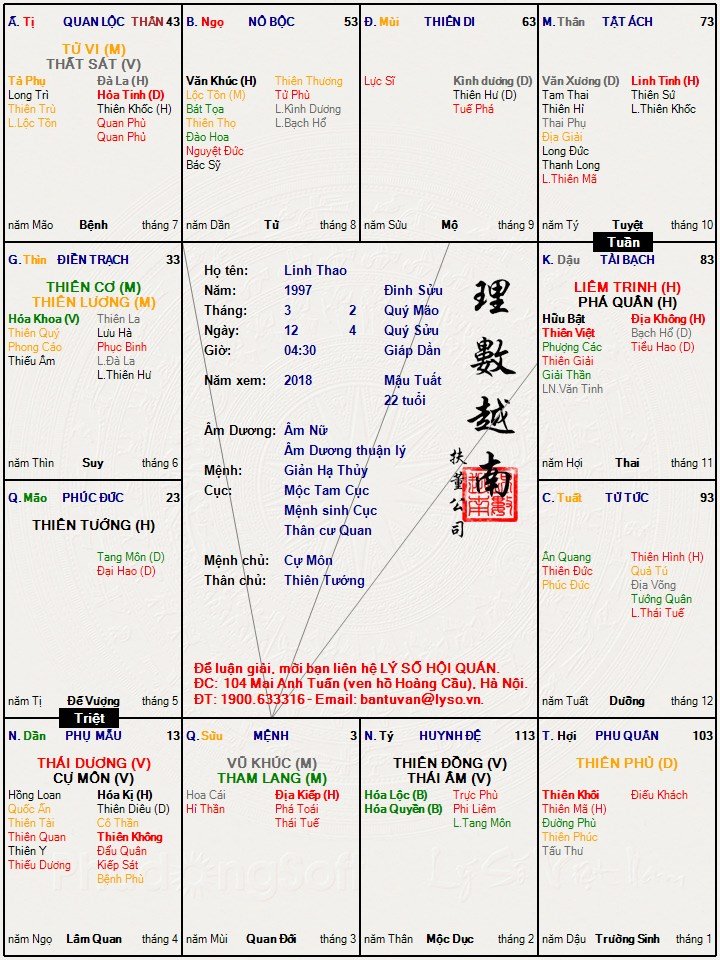 Ấ. Tị QUAN LỘC THÂN 43
TỬ VI (M)
THẤT SÁT (V)
Tả Phụ Đà La (H)
Long Trì Hỏa Tinh (D)
Thiên Trù Thiên Khốc (H)
L.Lộc Tồn Quan Phù
Quan Phủ
năm Mão Bệnh tháng 7
B. Ngọ NÔ BỘC 53
Văn Khúc (H) Thiên Thương
Lộc Tồn (M) Tử Phù
Bát Tọa L.Kình Dương
Thiên Thọ L.Bạch Hổ
Đào Hoa
Nguyệt Đức
Bác Sỹ
năm Dần Tử tháng 8
Đ. Mùi THIÊN DI 63
Lực Sĩ Kình dương (D)
Thiên Hư (D)
Tuế Phá
năm Sửu Mộ tháng 9
M. Thân TẬT ÁCH 73
Văn Xương (D) Linh Tinh (H)
Tam Thai Thiên Sứ
Thiên Hỉ L.Thiên Khốc
Thai Phụ
Địa Giải
Long Đức
Thanh Long
L.Thiên Mã
năm Tý Tuyệt tháng 10
Tuần
G. Thìn ĐIỀN TRẠCH 33
THIÊN CƠ (M)
THIÊN LƯƠNG (M)
Hóa Khoa (V) Thiên La
Thiên Quý Lưu Hà
Phong Cáo Phục Binh
Thiếu Âm L.Đà La
L.Thiên Hư
năm Thìn Suy tháng 6
Họ tên: Linh Thao
Năm: 1997 Đinh Sửu
Tháng: 3 2 Quý Mão
Ngày: 12 4 Quý Sửu
Giờ: 04:30 Giáp Dần
Năm xem: 2018 Mậu Tuất
22 tuổi
Âm Dương: Âm Nữ
Âm Dương thuận lý
Mệnh: Giản Hạ Thủy
Cục: Mộc Tam Cục
Mệnh sinh Cục
Thân cư Quan
Mệnh chủ: Cự Môn
Thân chủ: Thiên Tướng
理數越南
扶董公司
Để luận giải, mời bạn liên hệ LÝ SỐ HỘI QUÁN.
ĐC: 104 Mai Anh Tuấn (ven hồ Hoàng Cầu), Hà Nội.
ĐT: 1900.633316 - Email: bantuvan@lyso.vn.
K. Dậu TÀI BẠCH 83
LIÊM TRINH (H)
PHÁ QUÂN (H)
Hữu Bật Địa Không (H)
Thiên Việt Bạch Hổ (D)
Phượng Các Tiểu Hao (D)
Thiên Giải
Giải Thần
LN.Văn Tinh
năm Hợi Thai tháng 11
Q. Mão PHÚC ĐỨC 23
THIÊN TƯỚNG (H)
Tang Môn (D)
Đại Hao (D)
năm Tị Đế Vượng tháng 5
C. Tuất TỬ TỨC 93
Ân Quang Thiên Hình (H)
Thiên Đức Quả Tú
Phúc Đức Địa Võng
Tướng Quân
L.Thái Tuế
năm Tuất Dưỡng tháng 12
Triệt
N. Dần PHỤ MẪU 13
THÁI DƯƠNG (V)
CỰ MÔN (V)
Hồng Loan Hóa Kị (H)
Quốc Ấn Thiên Diêu (D)
Thiên Tài Cô Thần
Thiên Quan Thiên Không
Thiên Y Đẩu Quân
Thiếu Dương Kiếp Sát
Bệnh Phù
năm Ngọ Lâm Quan tháng 4
Q. Sửu MỆNH 3
VŨ KHÚC (M)
THAM LANG (M)
Hoa Cái Địa Kiếp (H)
Hỉ Thần Phá Toái
Thái Tuế
năm Mùi Quan Đới tháng 3
N. Tý HUYNH ĐỆ 113
THIÊN ĐỒNG (V)
THÁI ÂM (V)
Hóa Lộc (B) Trực Phù
Hóa Quyền (B) Phi Liêm
L.Tang Môn
năm Thân Mộc Dục tháng 2
T. Hợi PHU QUÂN 103
THIÊN PHỦ (D)
Thiên Khôi Điếu Khách
Thiên Mã (H)
Đường Phù
Thiên Phúc
Tấu Thư
năm Dậu Trường Sinh tháng 1